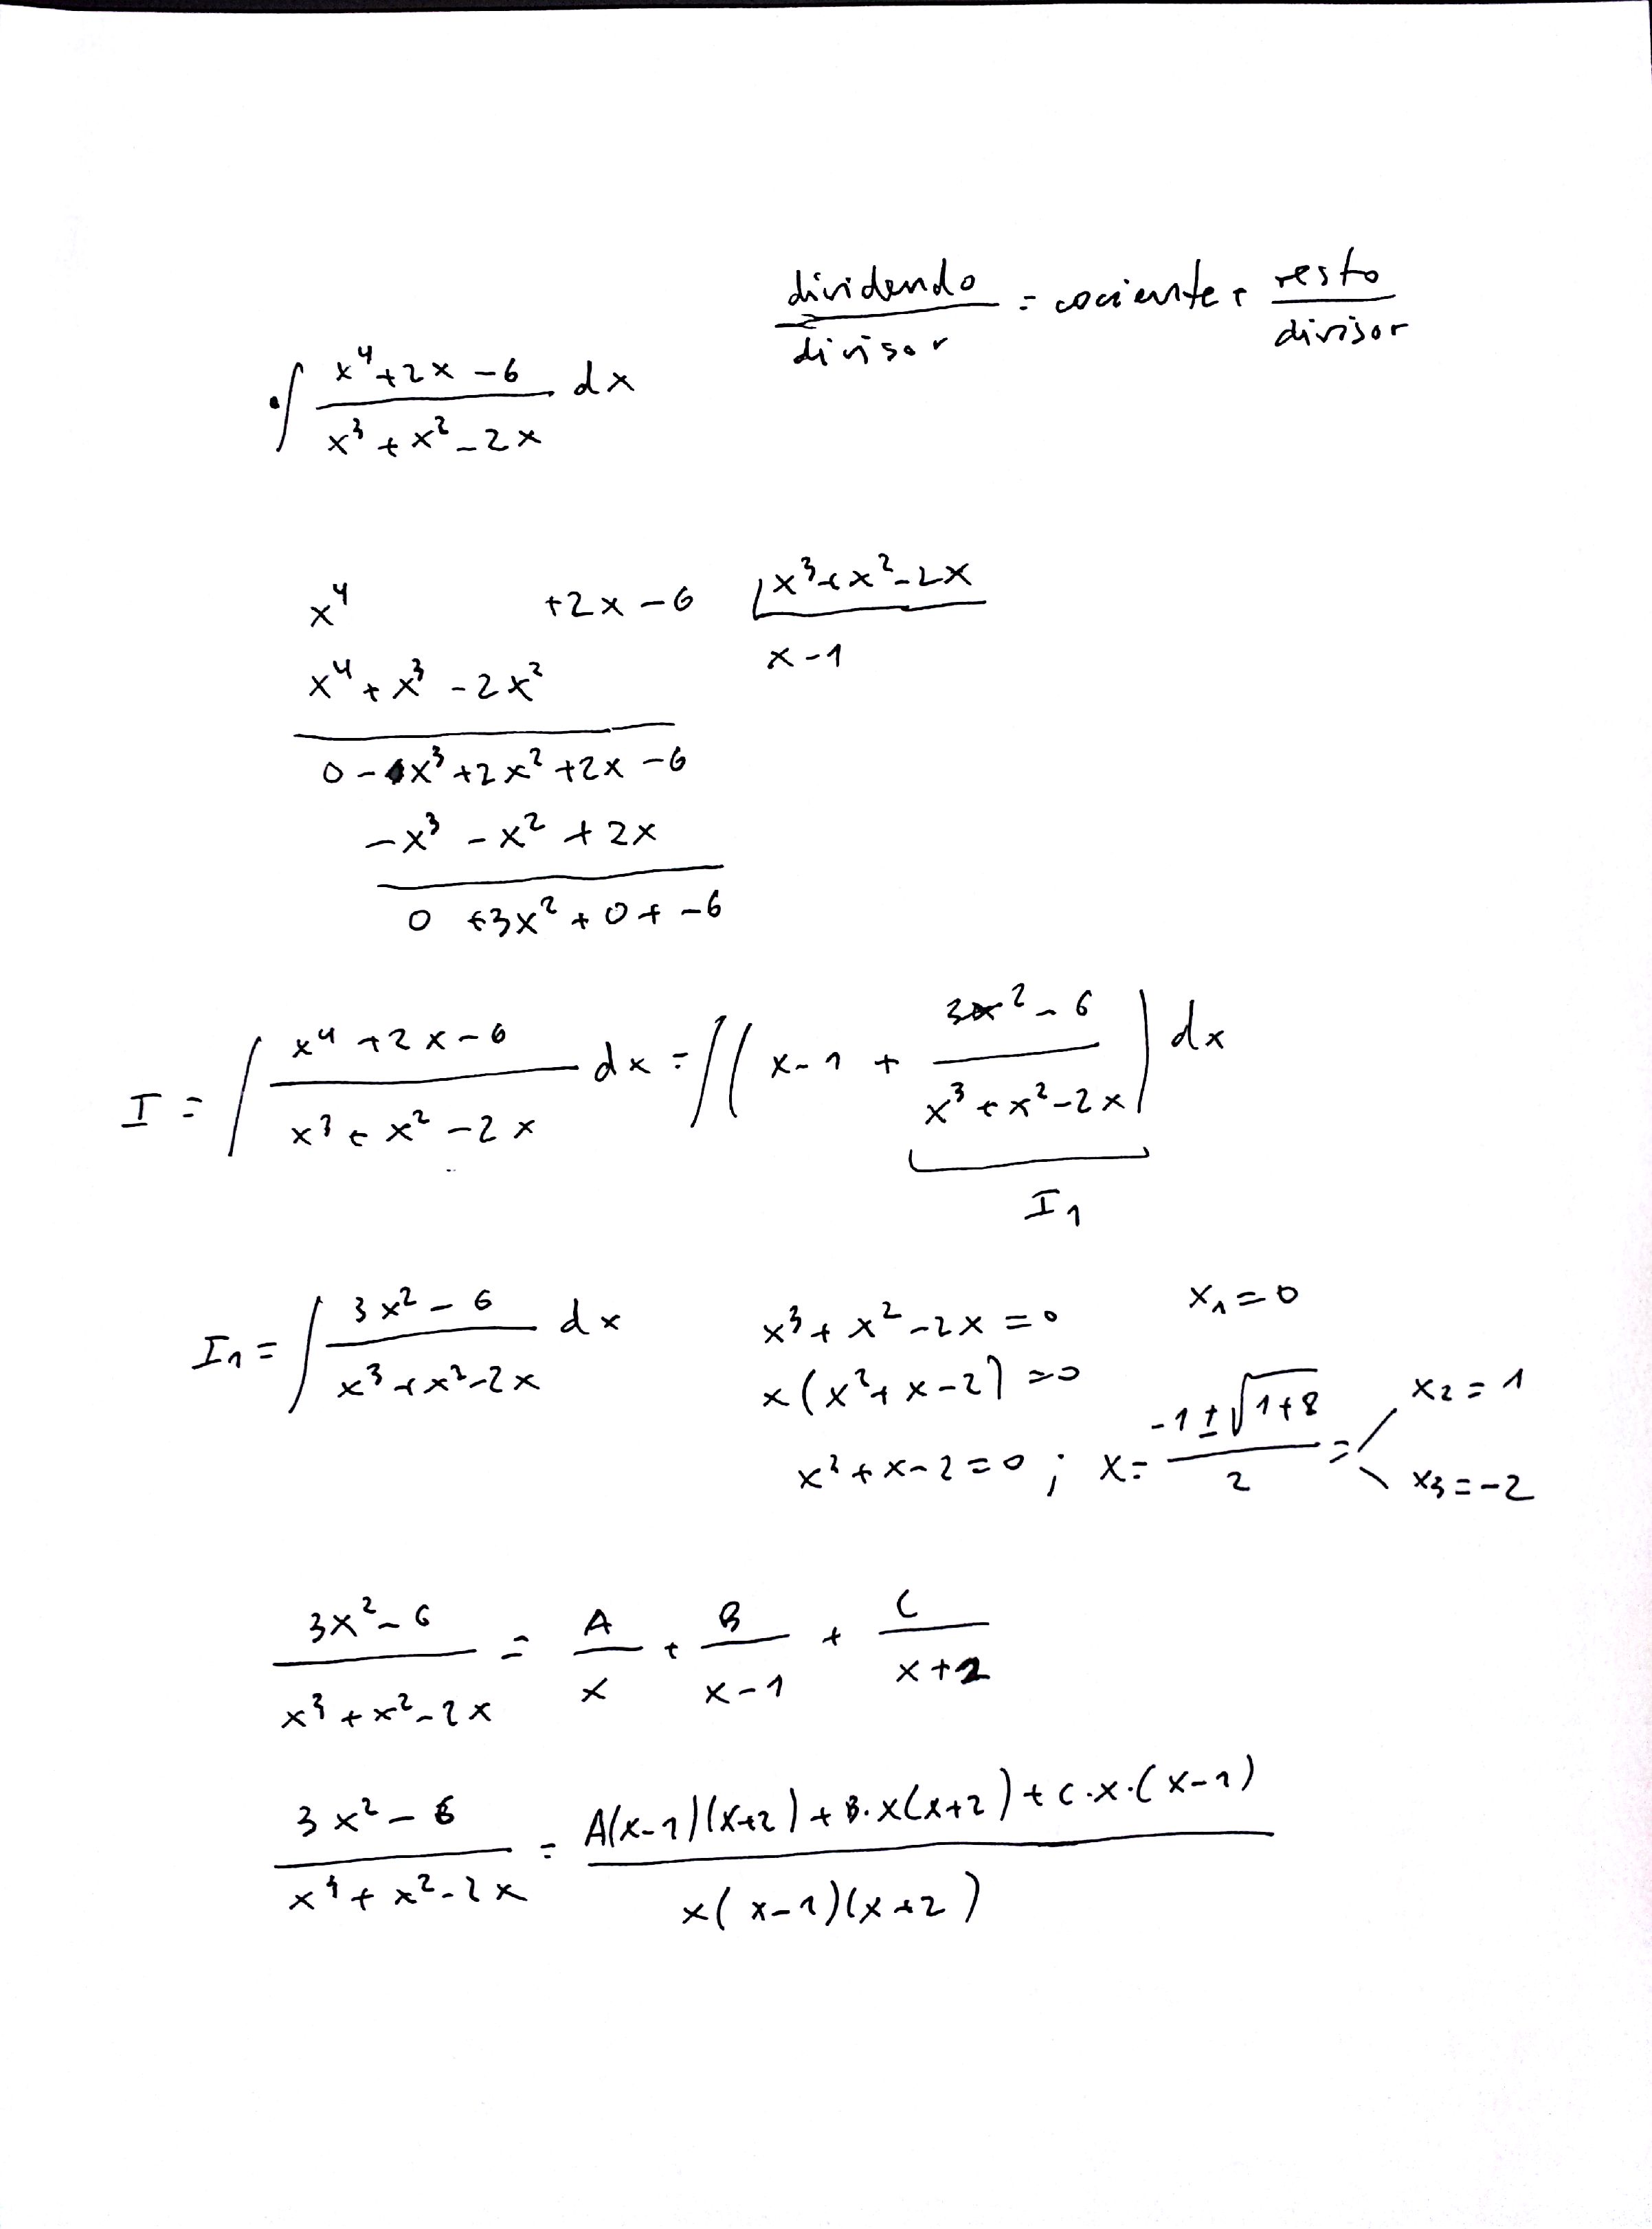 dividendo/divisor = cociente + resto/divisor
∫ (x⁴+2x-6)/(x³+x²-2x) dx
x⁴ +2x-6 | x³+x²-2x
x⁴+x³-2x² x-1
0-1x³+2x²+2x-6
-x³-x²+2x
0 +3x²+0+-6
I = ∫ (x⁴+2x-6)/(x³+x²-2x) dx = ∫(x-1 + (3x²-6)/(x³+x²-2x)) dx
I₁
I₁ = ∫ (3x²-6)/(x³+x²-2x) dx x³+x²-2x=0 x₁=0
x(x²+x-2)=0
x²+x-2=0 ; x= (-1±√(1+8))/2 = x₂=1 x₃=-2
(3x²-6)/(x³+x²-2x) = A/x + B/(x-1) + C/(x+2)
(3x²-6)/(x³+x²-2x) = (A(x-1)(x+2)+B·x(x+2)+C·x·(x-1))/(x(x-1)(x+2))